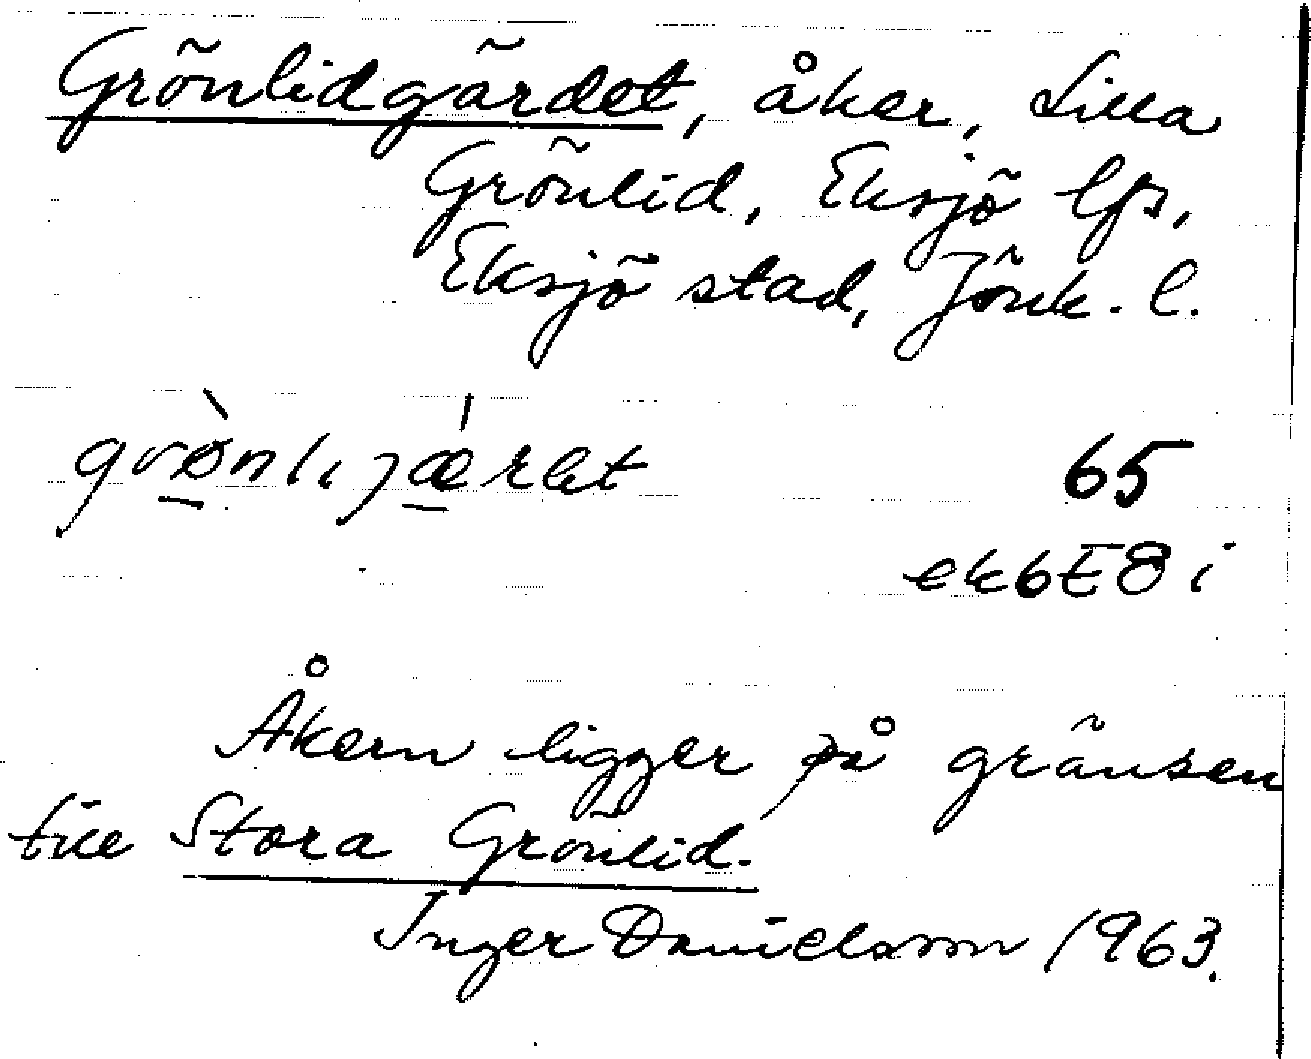 Grönlidgärdet, åker, Lilla
Grönlid, Eksjö lfs,
Eksjö stad, Jönk. l.
65
ek6E8i
Åkern ligger på gränsen
till Stora Grönlid.
Inger Danielsson 1963.